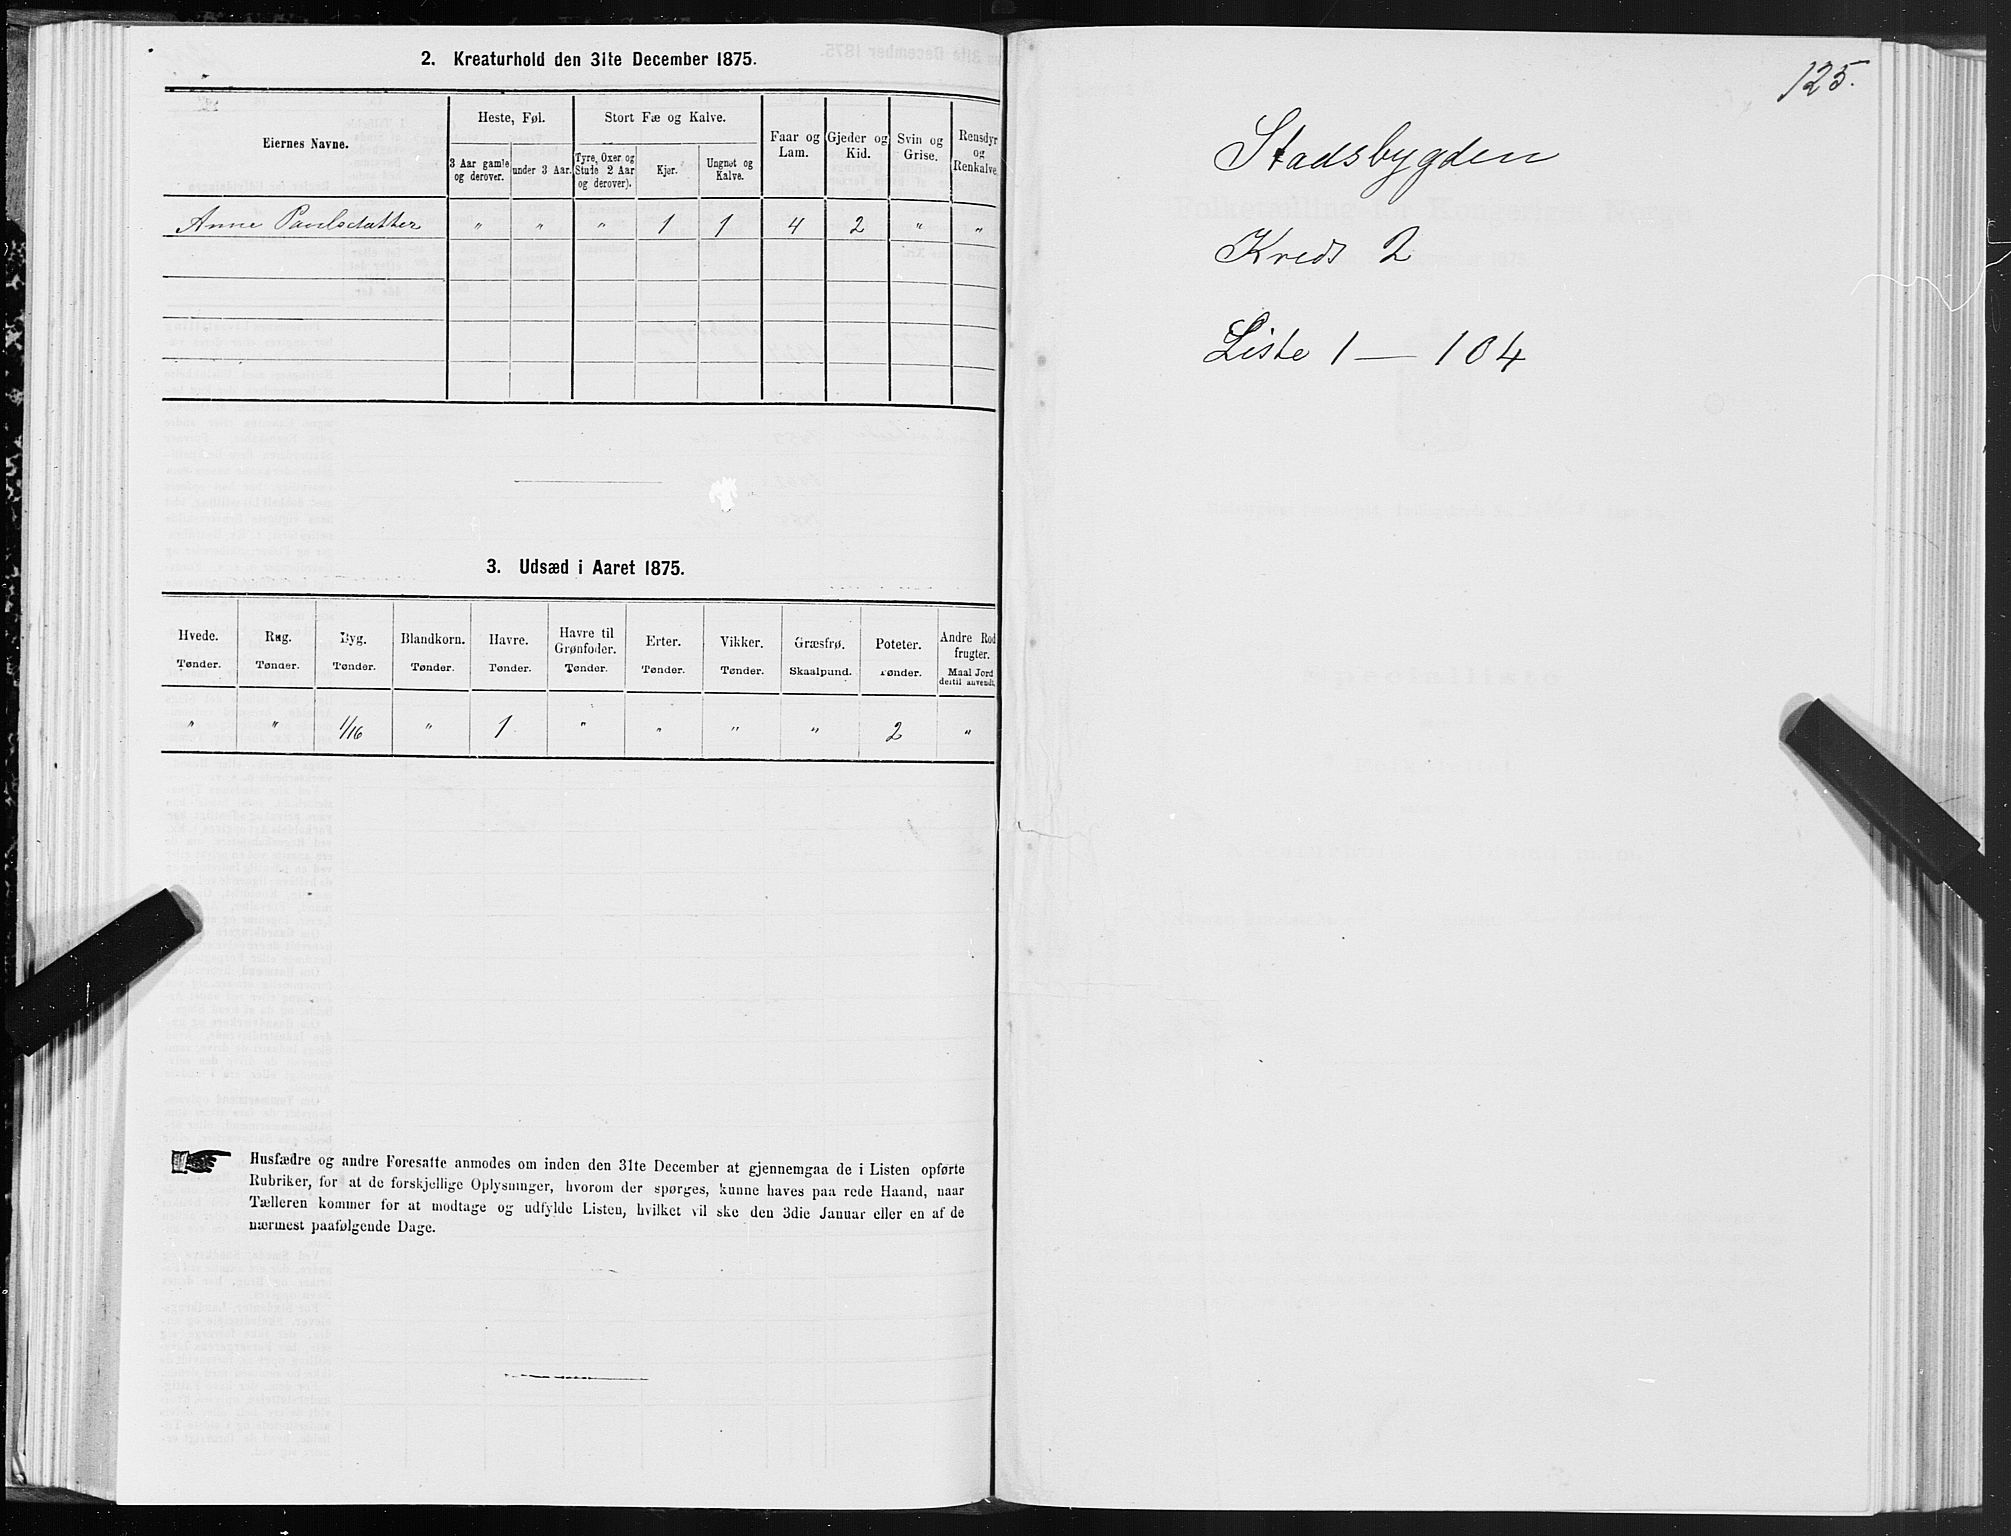 2. Kreaturhold den 31te December 1875.
Eiernes Navne.
Heste, Føl.
Stort Fæ og Kalve.
Faar og Lam.
Gjeder og Kid.
Svin og Grise.
Rensdyr og Renkalve.
3 Aar gamle og derover.
under 3 Aar.
Tyre, Oxer og Stude 2 Aar og derover).
Kjør.
Ungnøt og Kalve.
Anne Paulsdatter " " " 1 1 4 2 " "
3. Udsæd i Aaret 1875.
Hvede. Rug. Byg. Blandkorn. Havre. Havre til Grønfoder. Erter. Vikker. Græsfrø. Poteter. Andre Rodfrugter.
Tønder. Tønder. Tønder. Tønder. Tønder. Tønder. Tønder. Tønder. Skaalpund. Tønder. Maal Jord dertil anvendt.
" " 1/16 " 1 " " " " 2 "
Husfædre og andre Foresatte anmodes om inden den 31te December at gjennemgaa de i Listen opførte
Rubriker, for at de forskjellige Oplysninger, hvorom der spørges, kunne haves paa rede Haand, naar
Tælleren kommer for at modtage og udfylde Listen, hvilket vil ske den 3die Januar eller en af de
nærmest paafølgende Dage.
125.
Stadsbygden
Kreds 2
Liste 1 — 104